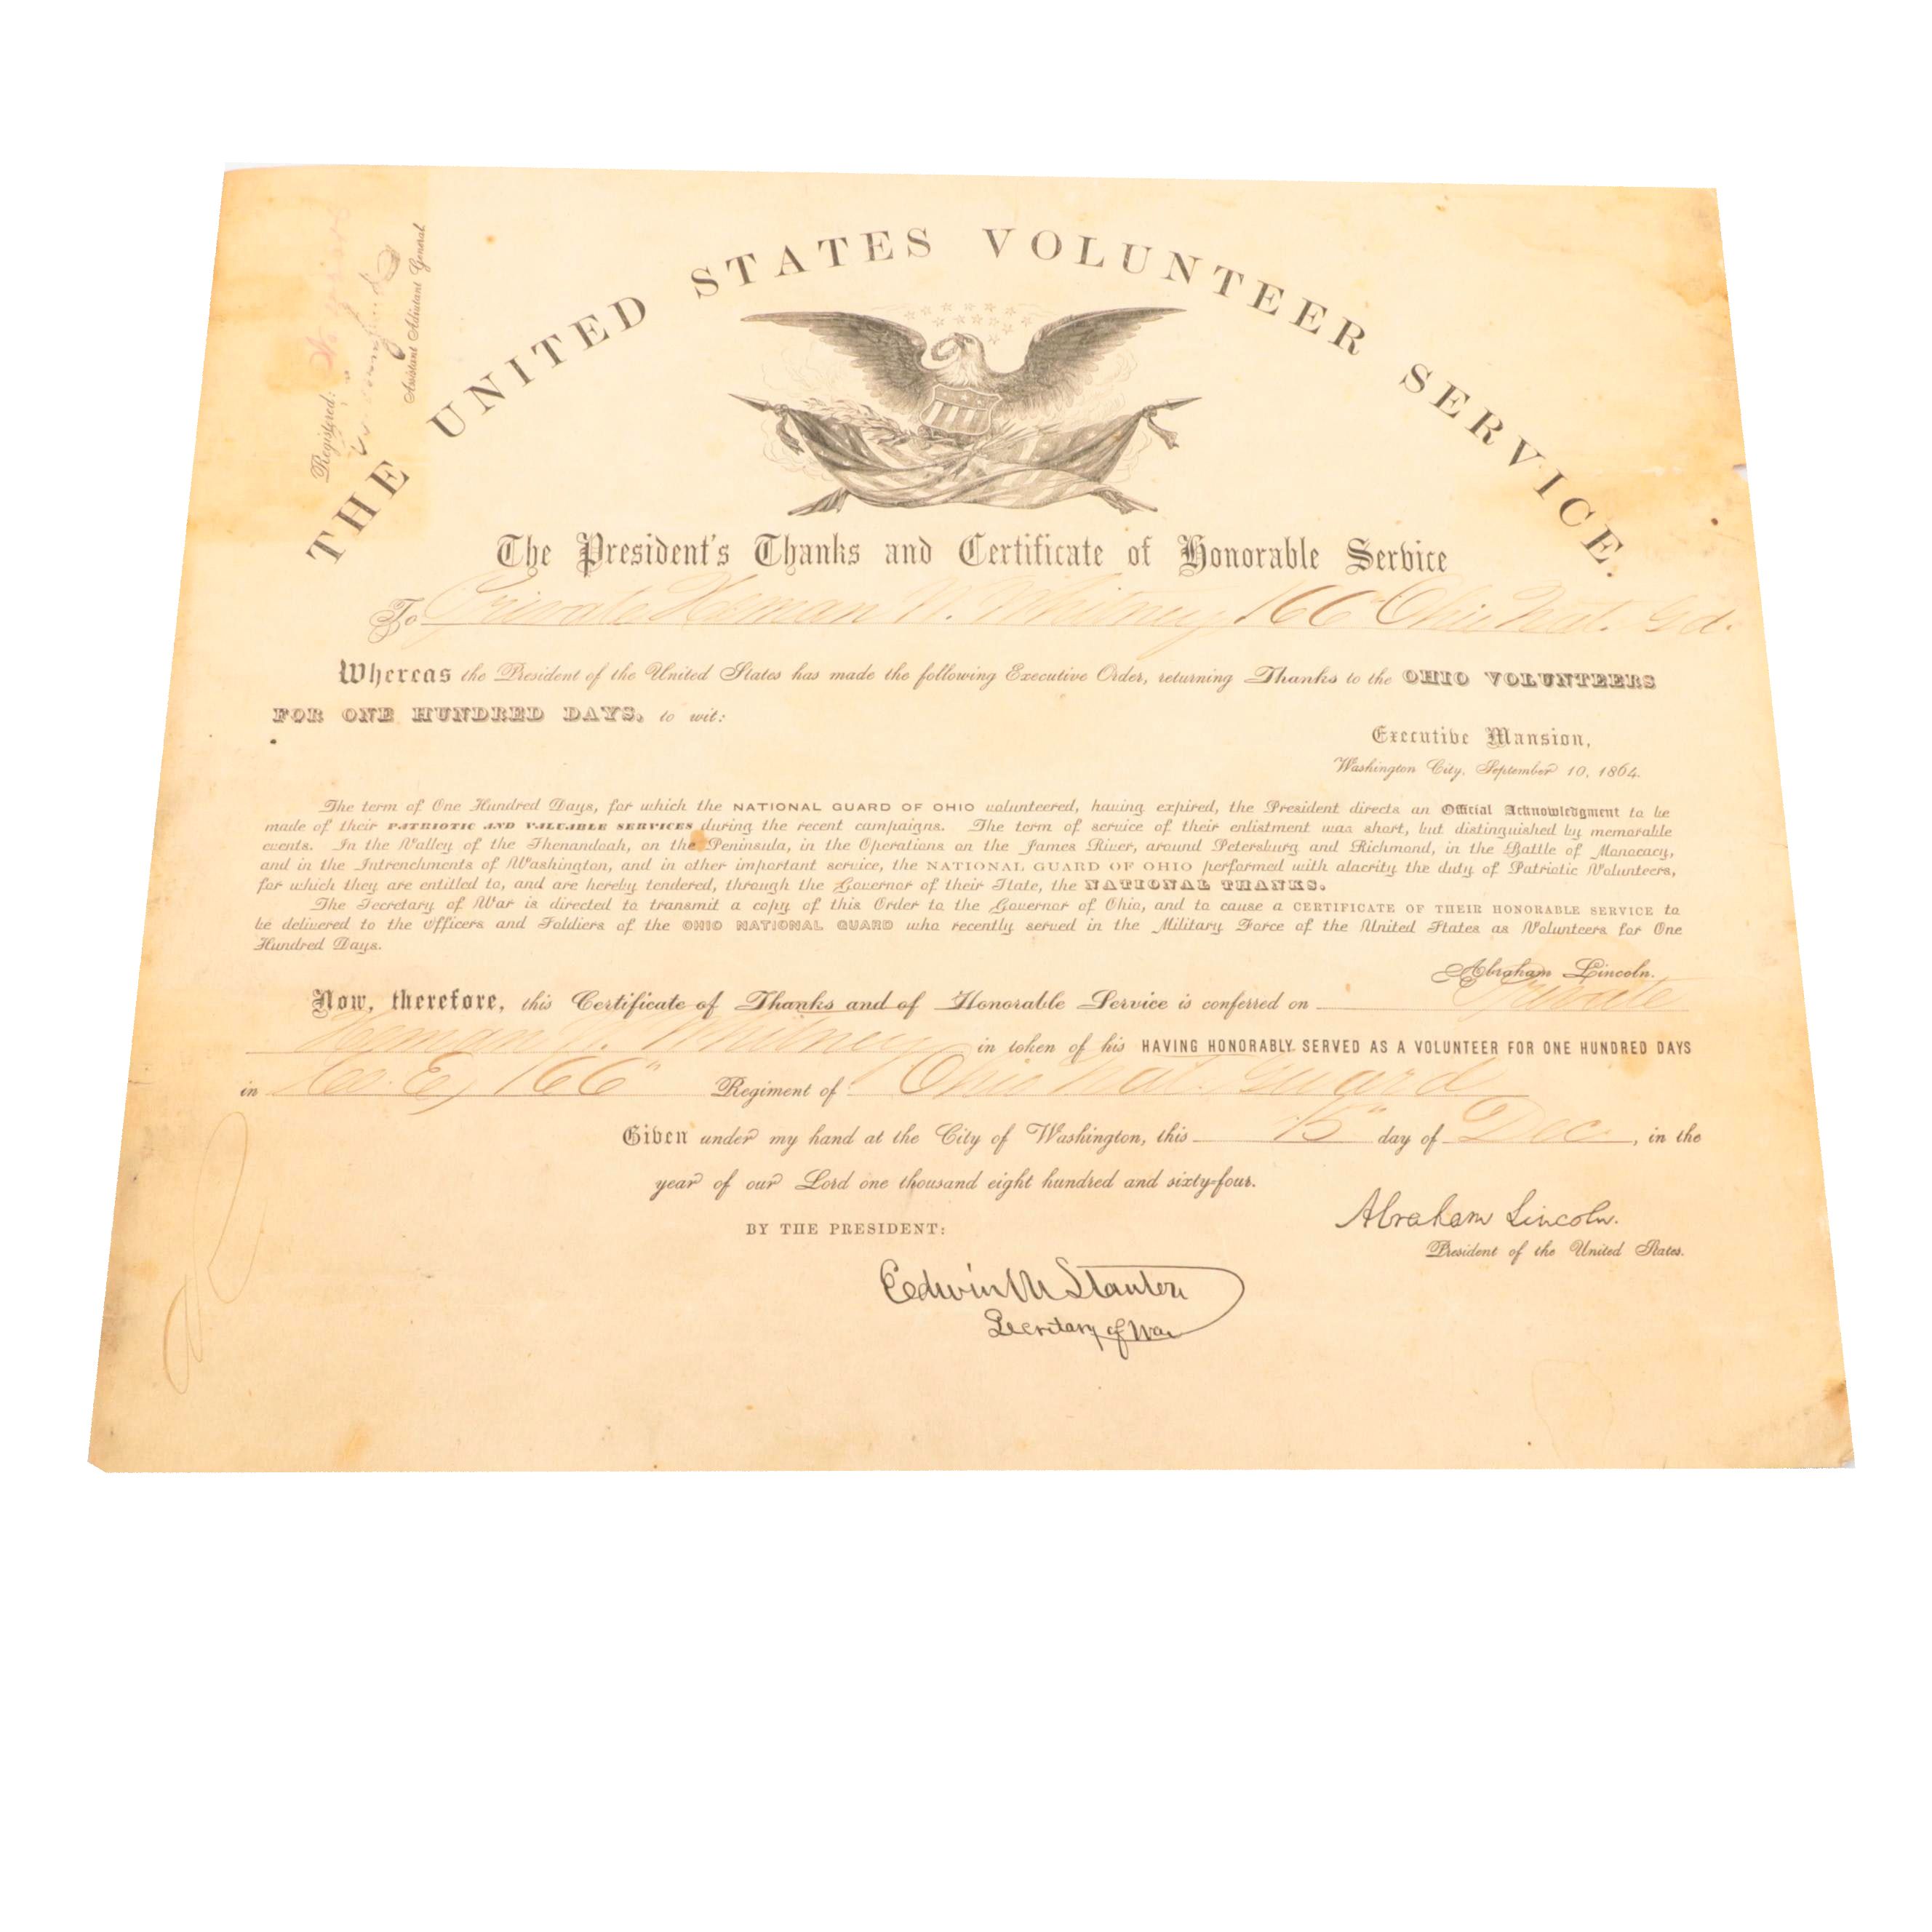 THE UNITED STATES VOLUNTEER SERVICE.
Registered:
Assistant Adjutant General
The President's Thanks and Certificate of Honorable Service
To Private Heman N. Whitney 166" Ohio Nat. Gd.
Whereas the President of the United States has made the following Executive Order, returning Thanks to the OHIO VOLUNTEERS
FOR ONE HUNDRED DAYS, to wit:
Executive Mansion,
Washington City, September 10, 1864.
The term of One Hundred Days, for which the NATIONAL GUARD OF OHIO volunteered, having expired, the President directs an Official Acknowledgment to be
made of their PATRIOTIC AND VALUABLE SERVICES during the recent campaigns. The term of service of their enlistment was short, but distinguished by memorable
events. In the Valley of the Shenandoah, on the Peninsula, in the Operations on the James River, around Petersburg and Richmond, in the Battle of Monocacy,
and in the Intrenchments of Washington, and in other important service, the NATIONAL GUARD OF OHIO performed with alacrity the duty of Patriotic Volunteers,
for which they are entitled to, and are hereby tendered, through the Governor of their State, the NATIONAL THANKS.
The Secretary of War is directed to transmit a copy of this Order to the Governor of Ohio, and to cause a CERTIFICATE OF THEIR HONORABLE SERVICE to
be delivered to the Officers and Soldiers of the OHIO NATIONAL GUARD who recently served in the Military Force of the United States as Volunteers for One
Hundred Days.
Abraham Lincoln.
Now, therefore, this Certificate of Thanks and of Honorable Service is conferred on Private
Heman N. Whitney in token of his HAVING HONORABLY SERVED AS A VOLUNTEER FOR ONE HUNDRED DAYS
in Co. E, 166" Regiment of Ohio Nat. Guard
Given under my hand at the City of Washington, this 15" day of Dec, in the
year of our Lord one thousand eight hundred and sixty-four.
Abraham Lincoln.
BY THE PRESIDENT:
President of the United States.
Edwin M Stanton
Secretary of War